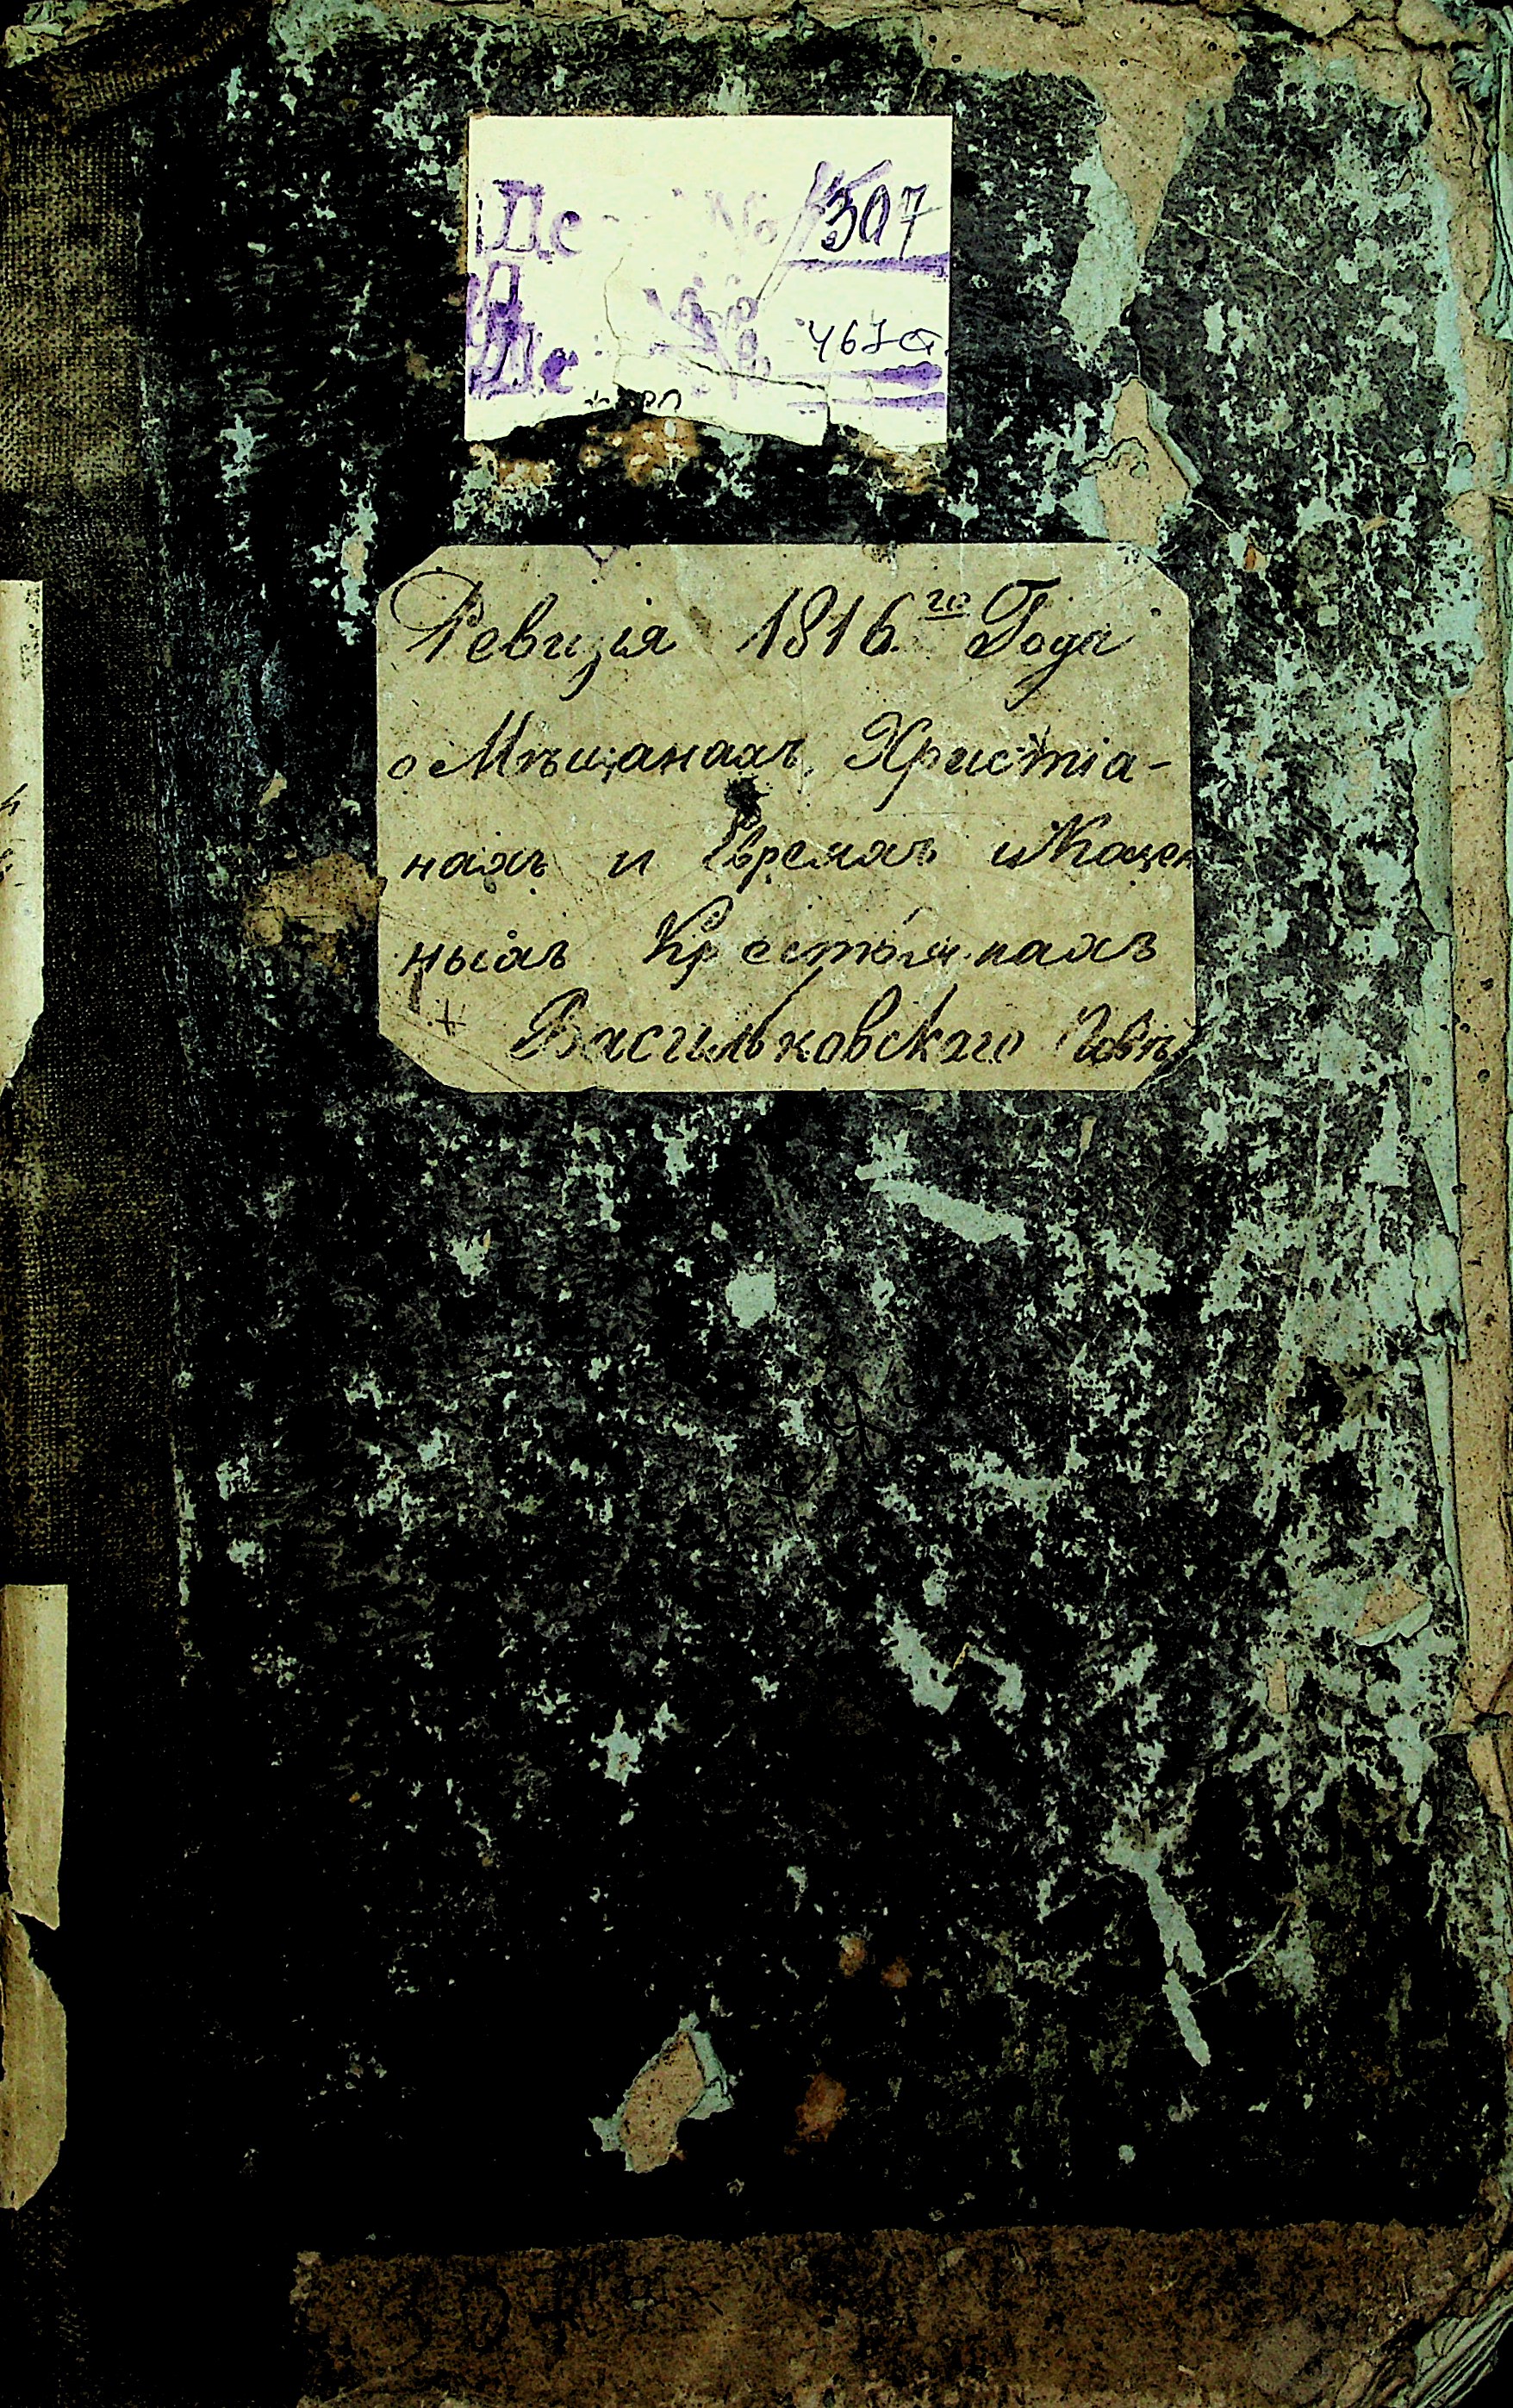 № 507
467а
Ревизія 1816.го Года
о Мѣщанахъ, Христіа-
нахъ и Евреяхъ и Казен
ныхъ Крестьянахъ
Васильковскаго Повѣ